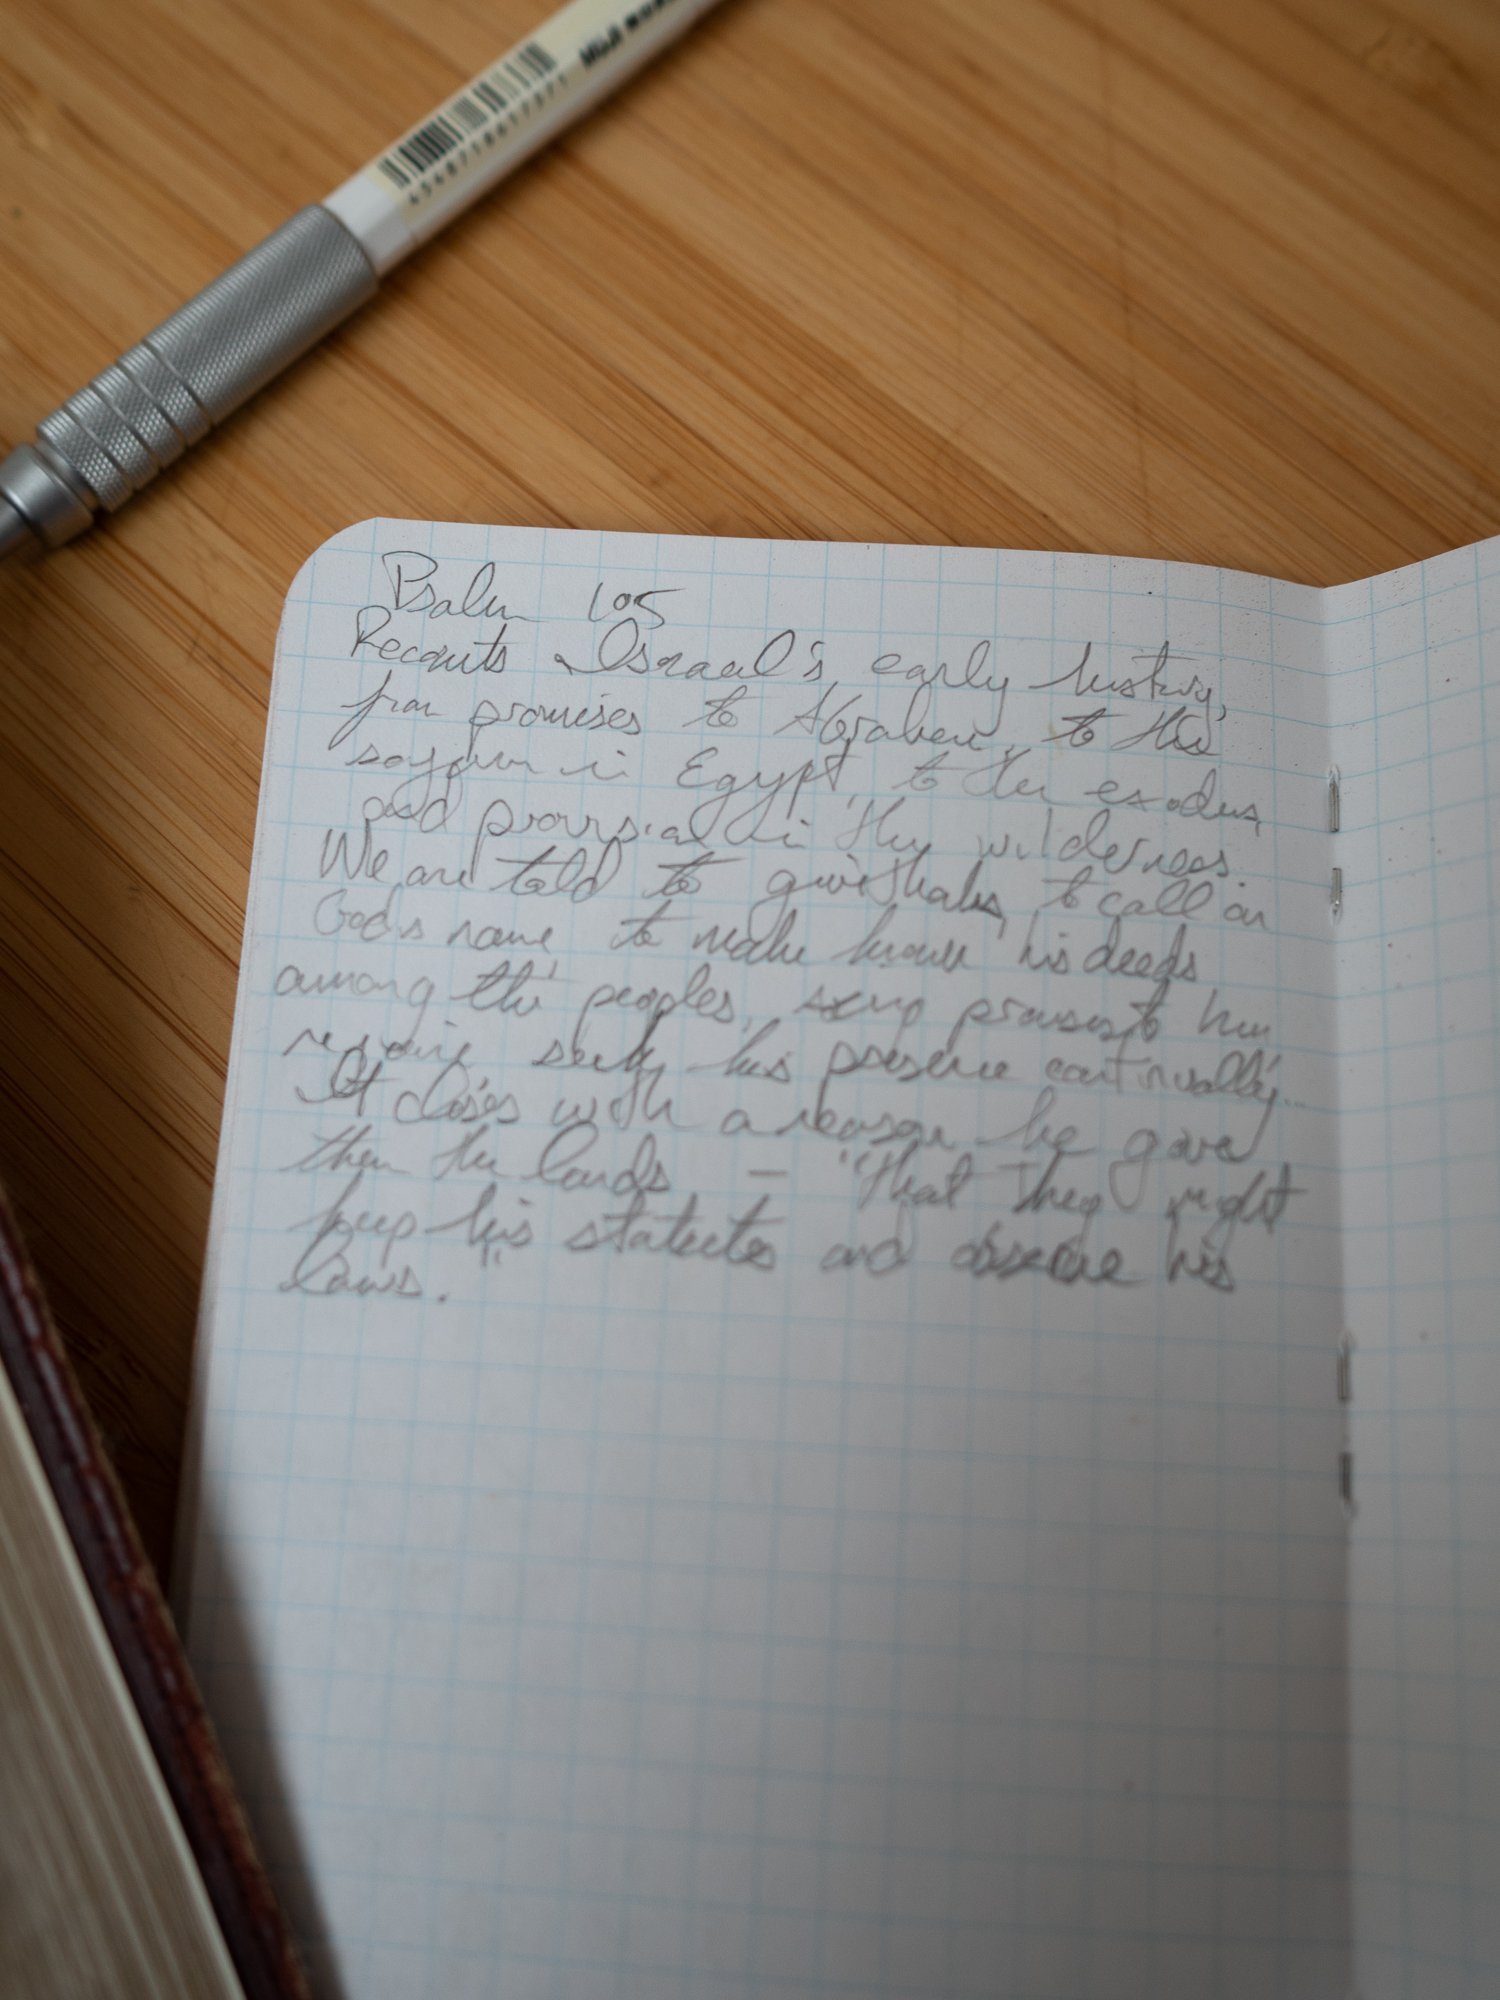 4548718017371 MUJI
Psalm 105
Recounts Israel's early history,
from promises to Abraham, to the
sojourn in Egypt, to the exodus,
and provision in the wilderness.
We are told to give thanks, to call on
God's name to make known his deeds
among the peoples, sing praises to him
rejoice seek his presence continually...
It closes with a reason he gave
them the lands — "that they might
keep his statutes and observe his
laws."